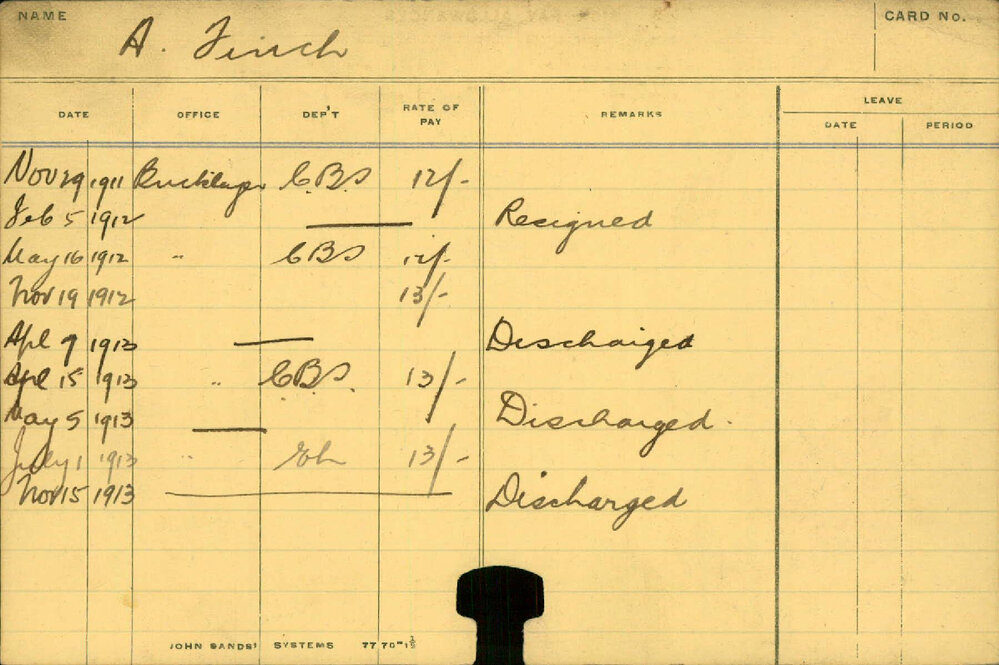 NAME A. Finch CARD No.
DATE OFFICE DEP'T RATE OF PAY REMARKS LEAVE
DATE PERIOD
Nov 29 1911 C.B.S 12/-
Feb 5 1912 Resigned
May 16 1912 " C B S 12/-
Nov 19 1912 13/-
Apl 9 1913 Discharged
Apl 15 1913 " C.B.S. 13/-
May 5 1913 Discharged.
July 1 1913 " 13/-
Nov 15 1913 Discharged
JOHN SANDS' SYSTEMS 7770